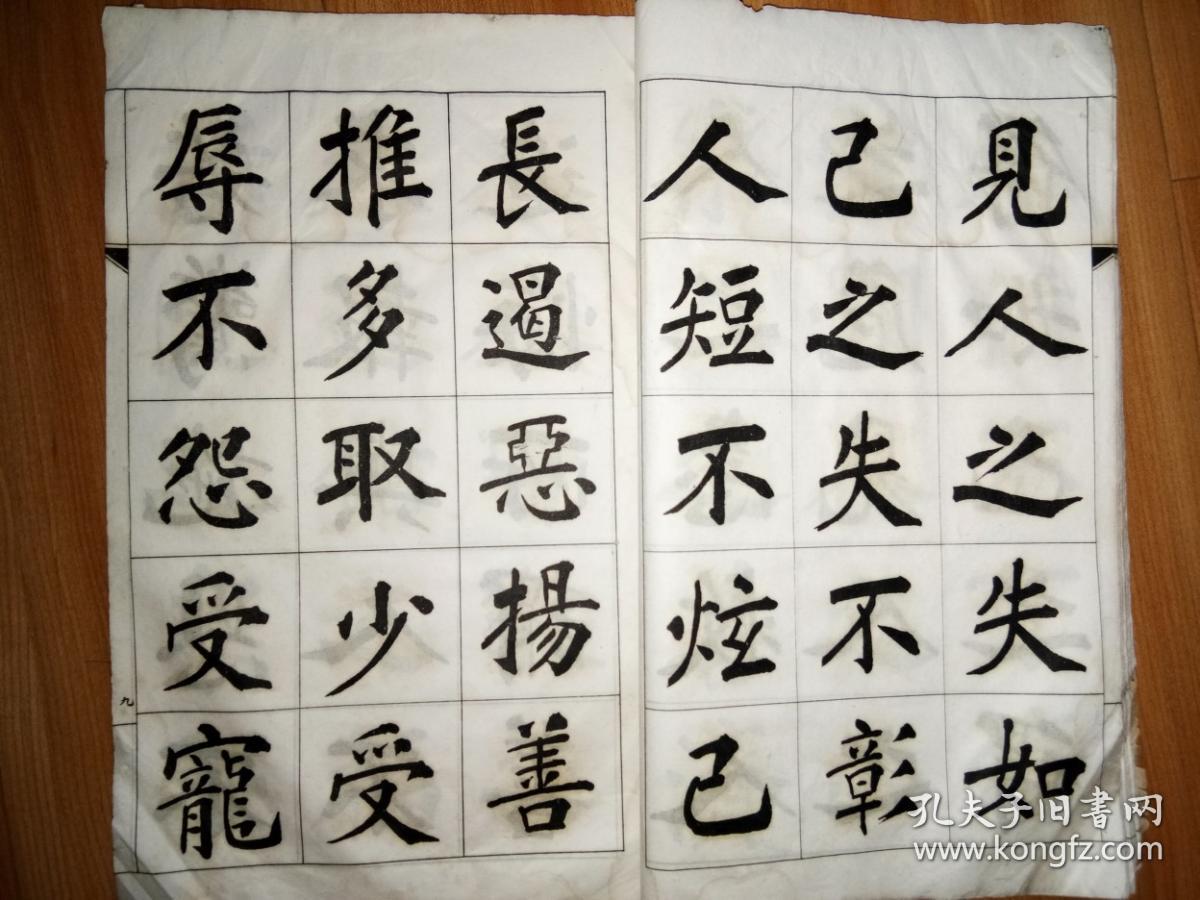 見人之失如
己之失不彰
人短不炫己
長遏惡揚善
推多取少受
辱不怨受寵
九
孔夫子旧书网
www.kongfz.com